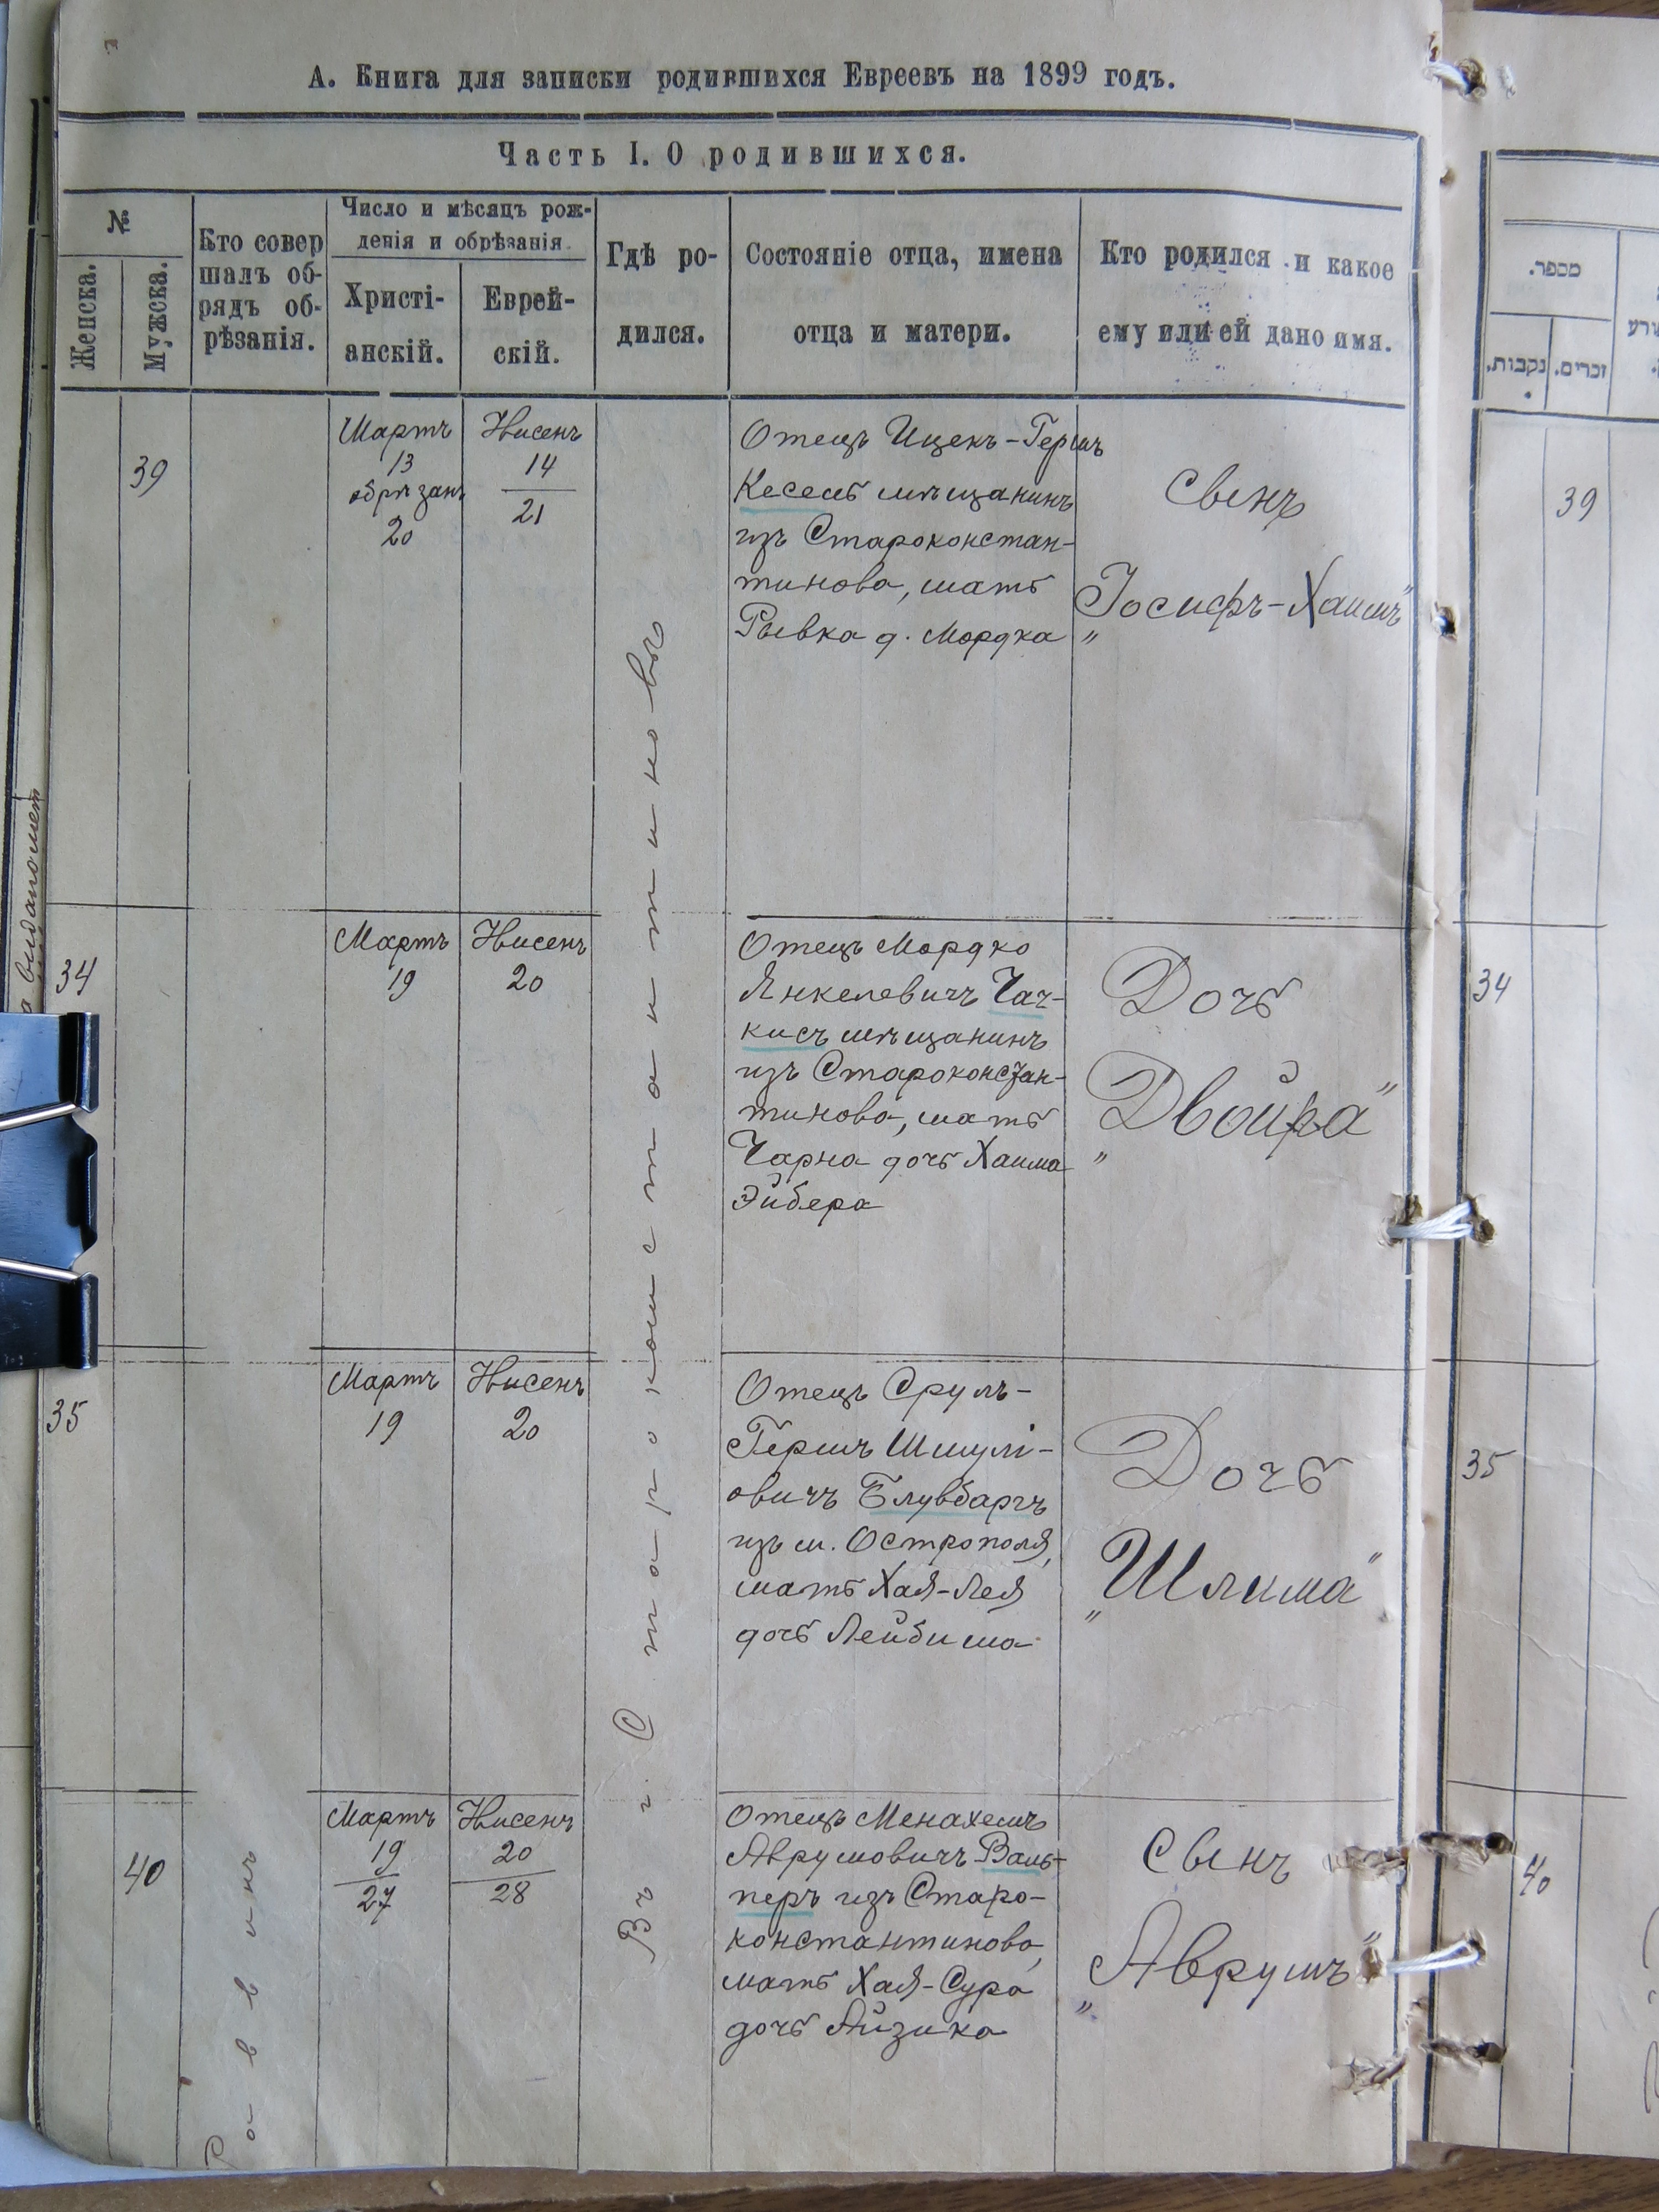 А. Книга для записки родившихся Евреевъ на 1899 годъ.
Часть I. О родившихся.
№
Женска.
Мужска.
Кто совер
шалъ об-
рядъ об-
рѣзанія.
Число и мѣсяцъ рож-
денія и обрѣзанія.
Христі-
анскій.
Еврей-
скій.
Гдѣ ро-
дился.
Состояніе отца, имена
отца и матери.
Кто родился и какое
ему или ей дано имя.
מספר.
נקבות.
זכרים.
39
Мартъ
13
обрѣзанъ
20
Нисенъ
14
21
Отецъ Ицекъ-Гершъ
Кесель мѣщанинъ
изъ Староконстан-
тинова, мать
Рывка д. Мордка
Сынъ
"Іосифъ-Хаимъ"
39
34
Мартъ
19
Нисенъ
20
Отецъ Мордко
Янкелевичъ Чач-
кисъ мѣщанинъ
изъ Староконстан-
тинова, мать
Чарна дочь Хаима
Эйбера
Дочь
"Двойра"
34
35
Мартъ
19
Нисенъ
20
Отецъ Сруль-
Гершъ Шмулі-
овичъ Блувбаргъ
изъ м. Острополя,
мать Хая-Лея
дочь Лейбиша
Дочь
"Шлима"
35
40
Мартъ
19
27
Нисенъ
20
28
Отецъ Менахемъ
Аврумовичъ Валь-
перъ изъ Старо-
константинова,
мать Хая-Сура
дочь Айзика
Сынъ
"Аврумъ"
40
Раввинъ
Въ г. Староконстантиновѣ